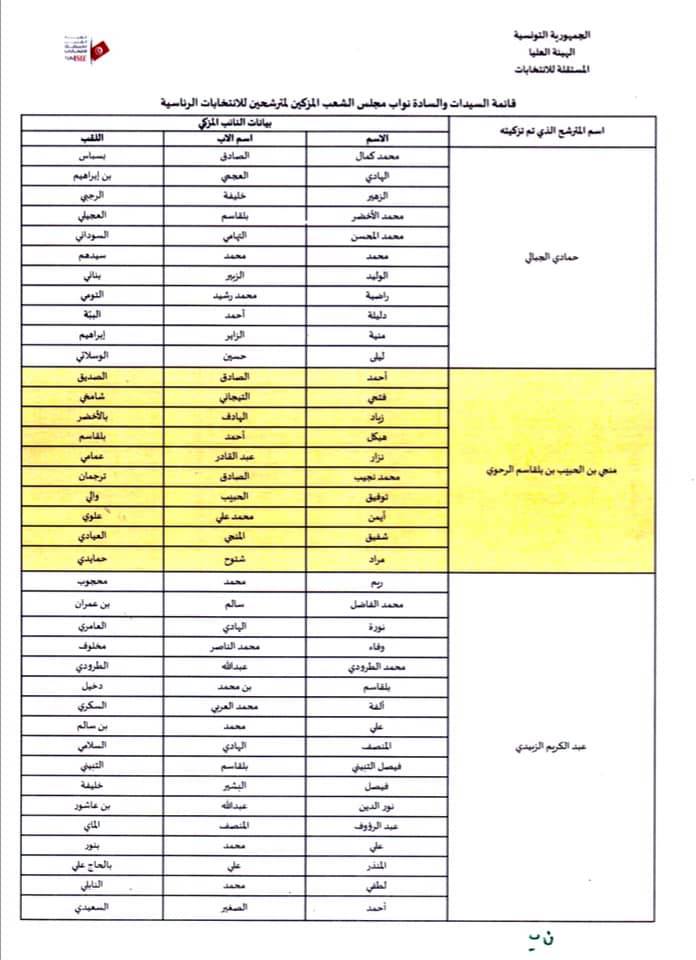 الجمهورية التونسية
الهيئة العليا
المستقلة للانتخابات
قائمة السيدات والسادة نواب مجلس الشعب المزكين لمترشحين للانتخابات الرئاسية
اسم المترشح الذي تم تزكيته
بيانات النائب المزكي
الاسم اسم الأب اللقب
حمادي الجبالي
محمد كمال الصادق بسباس
الهادي العجمي بن إبراهيم
الزهير خليفة الرجبي
محمد الأخضر بلقاسم العجيلي
محمد المحسن التهامي السوداني
محمد محمد سيدهم
الوليد الزبير بناني
راضية محمد رشيد التومي
دليلة أحمد الببّة
منية الزاير إبراهيم
ليلى حسين الوسلاتي
منجي بن الحبيب بن بلقاسم الرحوي
أحمد الصادق الصديق
فتحي التيجاني شامخي
زياد الهادف بالأخضر
هيكل أحمد بلقاسم
نزار عبد القادر عمامي
محمد نجيب الصادق ترجمان
توفيق الحبيب والي
أيمن محمد علي علوي
شفيق المنجي العيادي
مراد شتوح حمايدي
عبد الكريم الزبيدي
ريم محمد محجوب
محمد الفاضل سالم بن عمران
نورة الهادي العامري
وفاء محمد الناصر مخلوف
محمد الطرودي عبدالله الطرودي
بلقاسم بن محمد دخيل
ألفة محمد العربي السكري
علي محمد بن سالم
المنصف الهادي السلامي
فيصل التبيني بلقاسم التبيني
فيصل البشير خليفة
نور الدين عبدالله بن عاشور
عبد الرؤوف المنصف الماي
علي محمد بنور
المنذر علي بالحاج علي
لطفي محمد النابلي
أحمد الصغير السعيدي